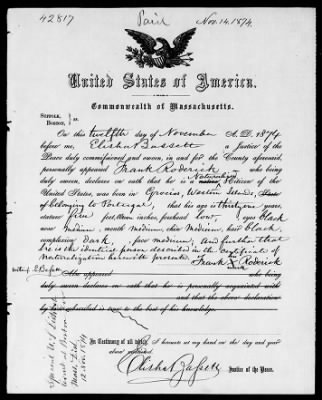 42817
Paid
Nov. 14. 1874.
United States of America.
Commonwealth of Massachusetts.
SUFFOLK,
BOSTON, } ss.
On this twelfth day of November A. D. 1874
before me, Elisha Bassett a Justice of the
Peace duly commissioned and sworn, in and for the County aforesaid,
personally appeared Frank Roderick who being
duly sworn, declares on oath that he is a Naturalized Citizen of the
United States, was born in Western Islands, State
of belonging to Portugal, that his age is years,
stature five feet, inches, forehead low, eyes black
nose medium, mouth medium, chin Medium, hair black
complexion Dark, face medium, and further that
he is the identical person described in the certificate of
naturalization herewith presented. Frank X Roderick
his
mark
witness E Bassett
Also appeared who being
duly sworn declares on oath that he is personally acquainted with
and that the above declaration
by him subscribed is true to the best of his knowledge.
In Testimony of all which, I hereunto set my hand on the day and year
above subscribed.
Elisha Bassett Justice of the Peace.
U.S. District
Court at Boston
Mass. Dist.
12 Nov. 1874